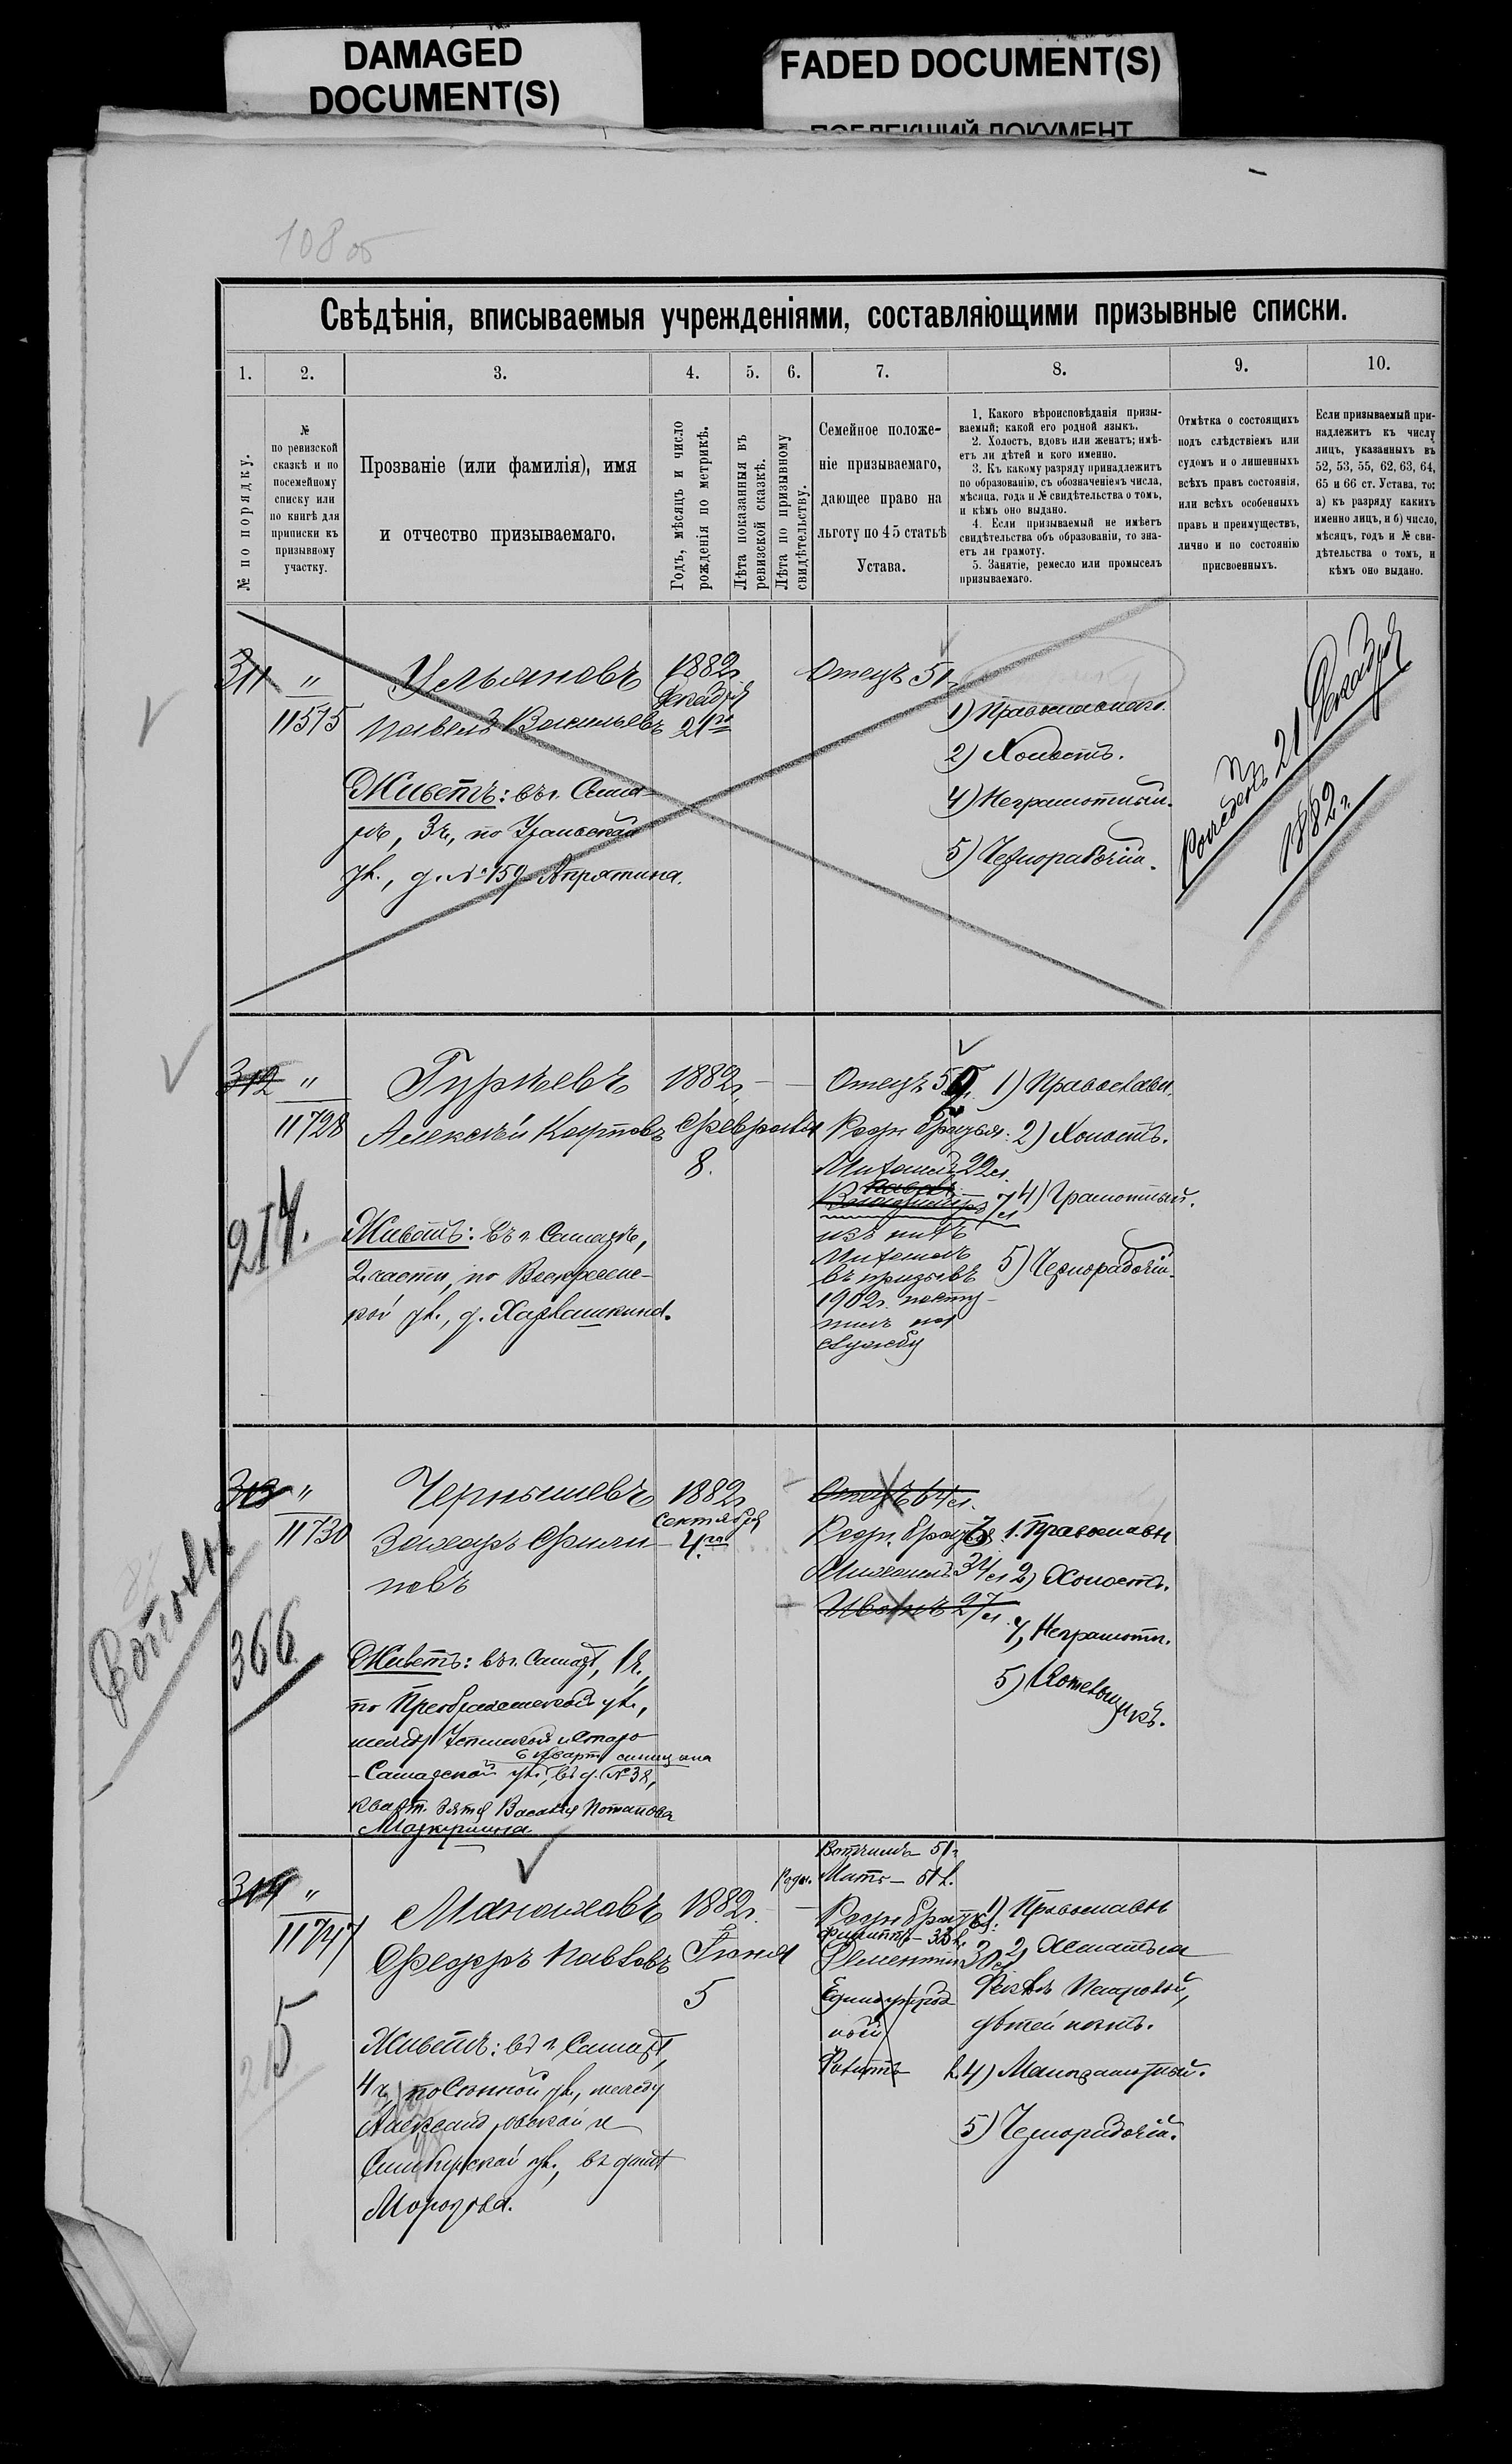 DAMAGED
DOCUMENT(S)
FADED DOCUMENT(S)
ПОБЛЕКШИЙ ДОКУМЕНТ
108 об
Свѣдѣнія, вписываемыя учрежденіями, составляющими призывные списки.
1.
2.
3.
4.
5.
6.
7.
8.
9.
10.
№ по порядку.
№
по ревизской
сказкѣ и по
посемейному
списку или
по книгѣ для
приписки къ
призывному
участку.
Прозваніе (или фамилія), имя
и отчество призываемаго.
Годъ, мѣсяцъ и число
рожденія по метрикѣ.
Лѣта показанныя въ
ревизской сказкѣ.
Лѣта по призывному
свидѣтельству.
Семейное положе-
ніе призываемаго,
дающее право на
льготу по 45 статьѣ
Устава.
1. Какого вѣроисповѣданія призы-
ваемый; какой его родной языкъ.
2. Холостъ, вдовъ или женатъ; имѣ-
етъ ли дѣтей и кого именно.
3. Къ какому разряду принадлежитъ
по образованію, съ обозначеніемъ числа,
мѣсяца, года и № свидѣтельства о томъ,
и кѣмъ оно выдано.
4. Если призываемый не имѣетъ
свидѣтельства объ образованіи, то зна-
етъ ли грамоту.
5. Занятіе, ремесло или промыселъ
призываемаго.
Отмѣтка о состоящихъ
подъ слѣдствіемъ или
судомъ и о лишенныхъ
всѣхъ правъ состоянія,
или всѣхъ особенныхъ
правъ и преимуществъ,
лично и по состоянію
присвоенныхъ.
Если призываемый при-
надлежитъ къ числу
лицъ, указанныхъ въ
52, 53, 55, 62, 63, 64,
65 и 66 ст. Устава, то:
а) къ разряду какихъ
именно лицъ, и б) число,
мѣсяцъ, годъ и № сви-
дѣтельства о томъ, и
кѣмъ оно выдано.
311
"
11575
Ульяновъ
Павелъ Васильевъ
1882г.
Декабря
21го
Живетъ: въ г. Сама-
рѣ, 3 ч., по Уральской
ул., д. № 159 Апрятина.
Отецъ 51
1) Православнаго.
2) Холостъ.
4) Неграмотный.
5) Чернорабочій.
21 Декабря
1882 г.
312
"
11728
214.
Гурьевъ
Алексѣй Карповъ
1882г.
Февраля
8.
Живетъ: въ г. Самарѣ,
2 части, по Воскресенс-
кой ул., д. Харлашкина.
Отецъ 59.
Родн. братья:
Михаилъ 22 л.
изъ нихъ
Михаилъ
въ призывъ
1902 г. посту-
пилъ на
службу
1) Православн.
2) Холостъ.
4) Грамотный.
5) Чернорабочій.
313
"
11730
366
Чернышевъ
Захаръ Филип-
повъ
1882г.
Сентября
4го
Живетъ: въ г. Самарѣ, 1 ч.,
по Преображенской ул.,
между Успенской и Старо
-Самарской ул., въ д. № 38,
кварт. зятя Василія Потапова
Отецъ 64 л.
Родн. братья
Михаилъ 34 л.
Иванъ 27 л.
1. Православн
2) Холостъ.
4) Неграмотн.
5) Котельщикъ.
314
"
11747
215
Манаховъ
Федоръ Павловъ
1882г.
Іюня
5
Живетъ: въ г. Самарѣ,
4 ч., по Сѣнной ул., между
Александровской и
Симбирской ул., въ домѣ
Морозова.
Вотчимъ 51 г.
Родн. Мать – 51 л.
Родн братья:
Филиппъ – 33 л.
Климентій 30 л.
Единоутроб
ной
1) Православн
2) Женатъ на
Феклѣ Петровой,
дѣтей нѣтъ.
4) Малограмотный.
5) Чернорабочій.